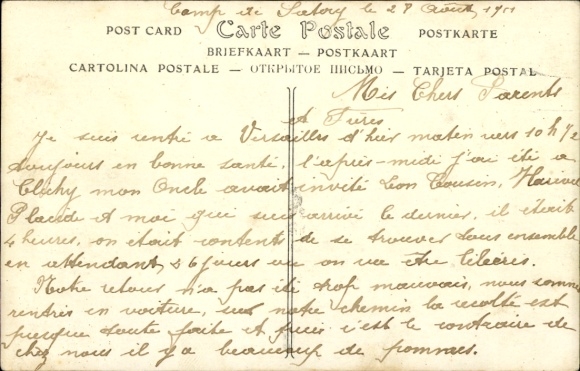 Camp de Satory le 28 Août 1911
POST CARD Carte Postale POSTKARTE
BRIEFKAART — POSTKAART
CARTOLINA POSTALE — ОТКРЫТОЕ ПИСЬМО — TARJETA POSTAL
Mes Chers Parents
et Frères
Je suis rentré a Versailles d'hier matin vers 10 h 1/2
toujours en bonne santé. l'après-midi j'ai été a
Clichy mon Oncle avait invité Leon Cousin,
Placid et moi qui suis arrivé le dernier, il était
4 heures, on était contents de se trouver tous ensemble
en attendant 26 jours ou on va être libérés.
Notre retour n'a pas été trop mauvais, nous sommes
rentrés en voiture, sur notre chemin la récolte est
presque toute faite et puis c'est le contraire de
chez nous il y a beaucoup de pommes.